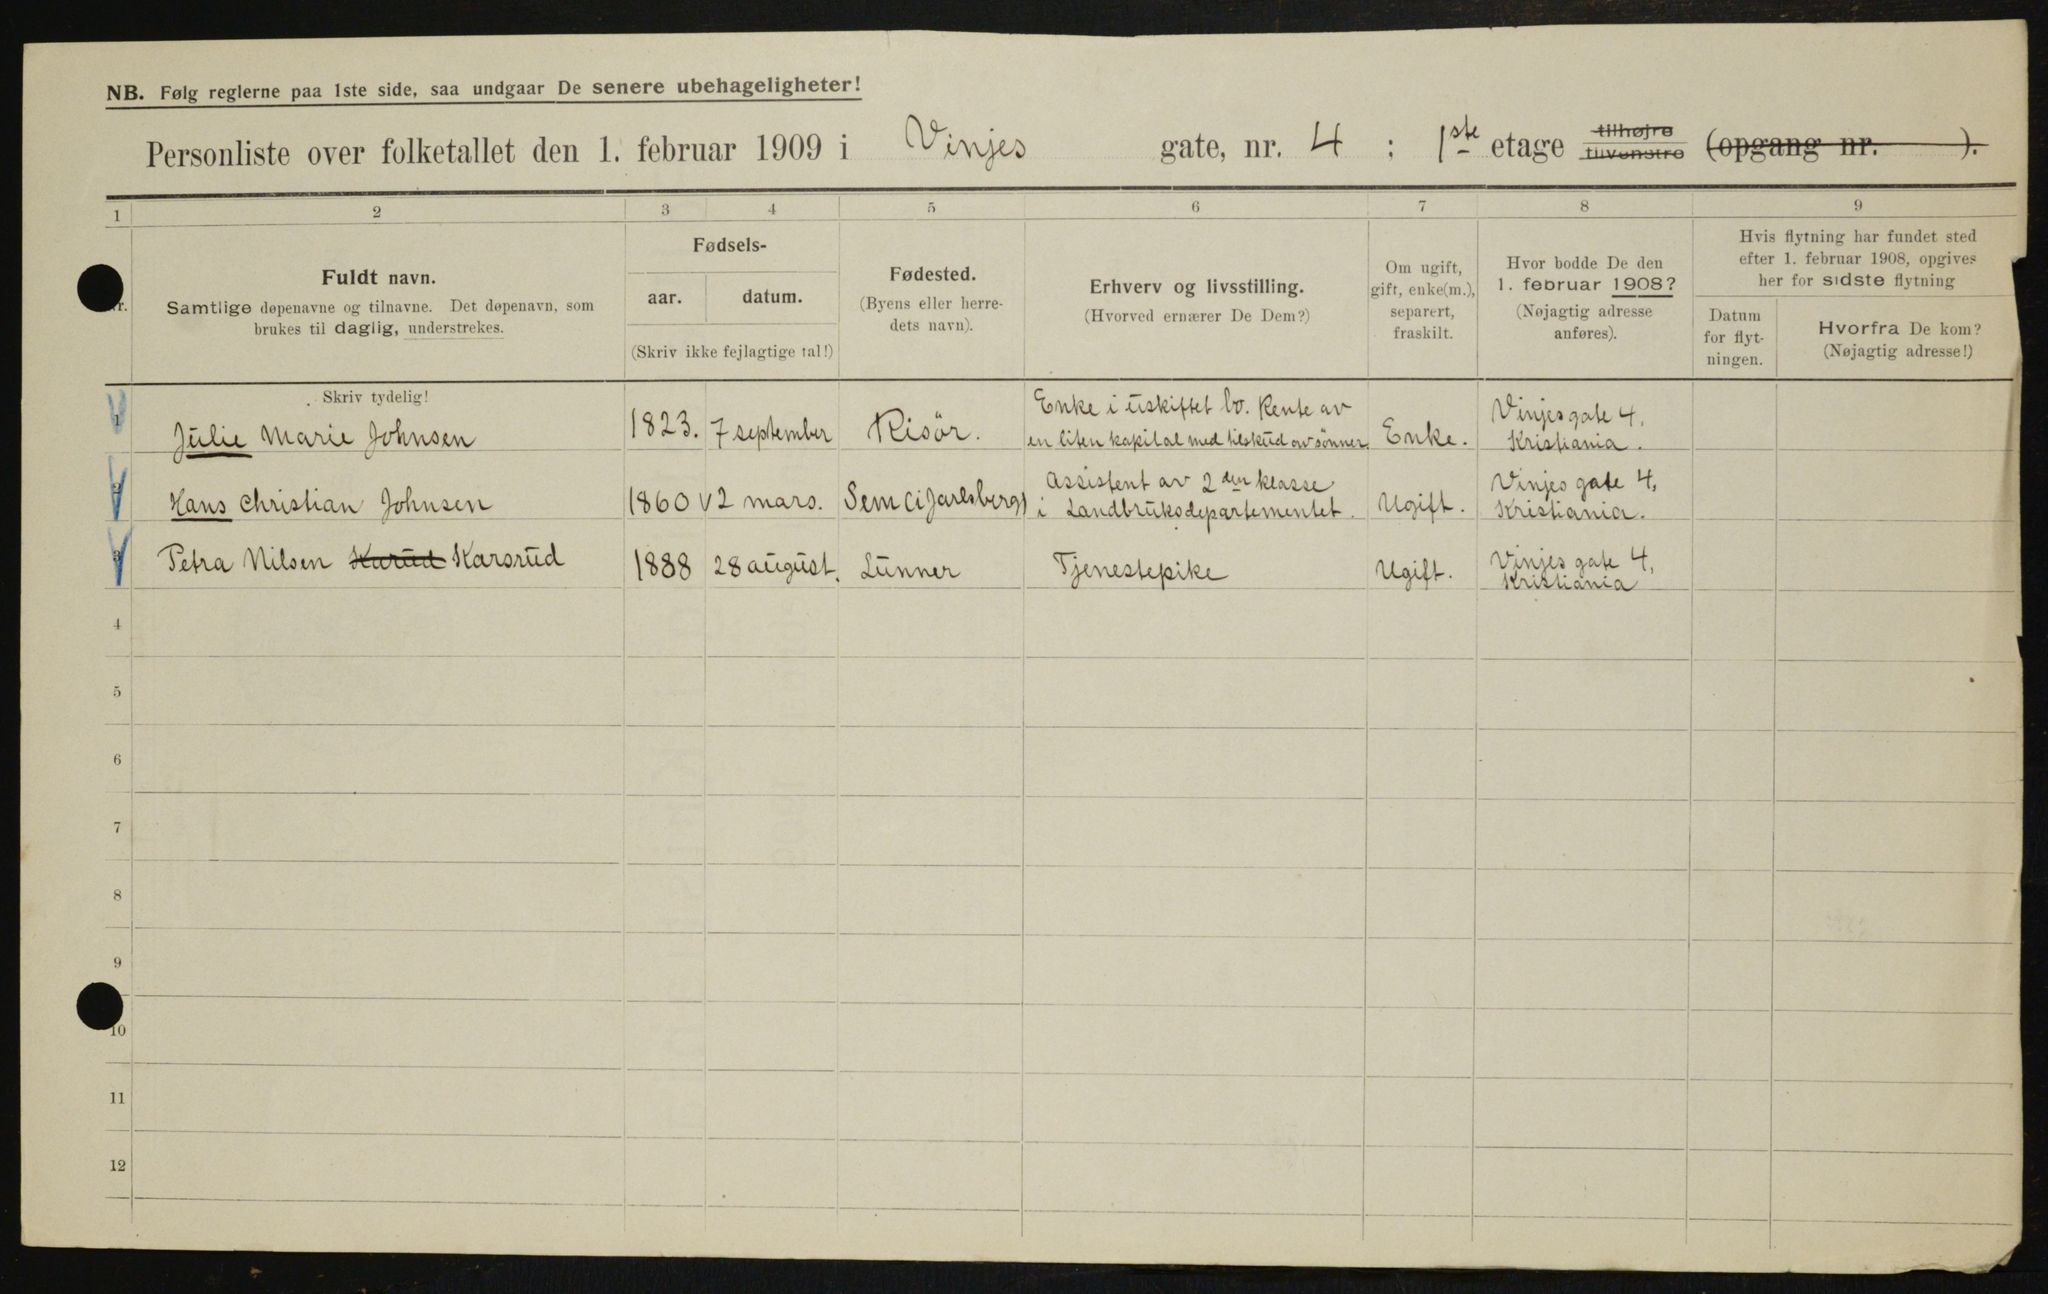 NB. Følg reglerne paa 1ste side, saa undgaar De senere ubehageligheter!
Personliste over folketallet den 1. februar 1909 i Vinjes gate, nr. 4 ; 1ste etage tilhøjre tilvenstre (opgang nr. ).
1 2 3 4 5 6 7 8 9
Nr.
Fuldt navn.
Samtlige døpenavne og tilnavne. Det døpenavn, som
brukes til daglig, understrekes.
Fødsels-
aar. datum.
(Skriv ikke fejlagtige tal!)
Fødested.
(Byens eller herre-
dets navn).
Erhverv og livsstilling.
(Hvorved ernærer De Dem?)
Om ugift,
gift, enke(m.),
separert,
fraskilt.
Hvor bodde De den
1. februar 1908?
(Nøjagtig adresse
anføres).
Hvis flytning har fundet sted
efter 1. februar 1908, opgives
her for sidste flytning
Datum
for flyt-
ningen.
Hvorfra De kom?
(Nøjagtig adresse!)
Skriv tydelig!
1 Julie Marie Johnsen 1823. 7 september Risör. Enke i uskiftet bo. Rente av
en liten kapital med tilskud av sønner. Enke. Vinjes gate 4,
Kristiania.
2 Hans Christian Johnsen 1860 2 mars. Sem (i Jarlsberg) Assistent av 2den klasse
i Landbruksdepartementet. Ugift. Vinjes gate 4,
Kristiania.
3 Petra Nilsen Karud Karsrud 1888 28 august. Lunner Tjenestepike Ugift. Vinjes gate 4,
Kristiania
4
5
6
7
8
9
10
11
12